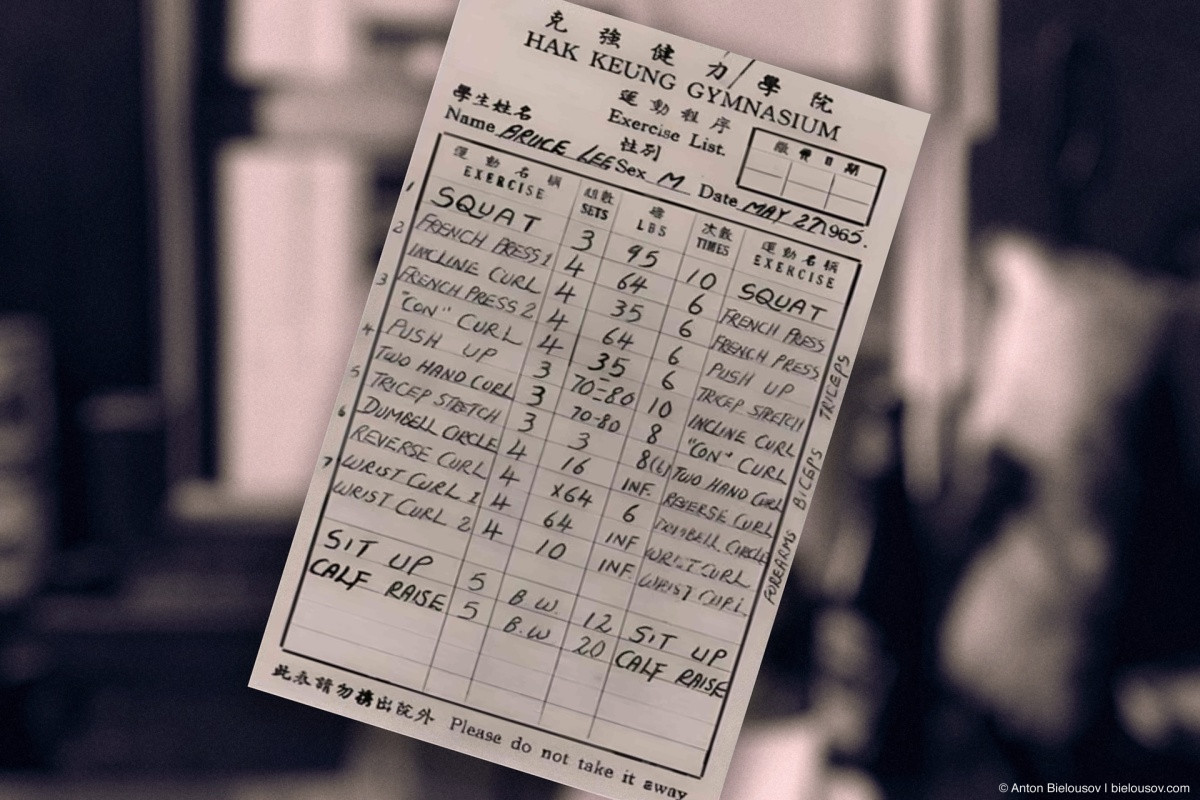 克強健力學院
HAK KEUNG GYMNASIUM
運動程序
Exercise List.
學生姓名 性別
Name BRUCE LEE Sex M Date MAY 27 1965.
繳費日期
運動名稱 組數 磅 次數 運動名稱
EXERCISE SETS LBS TIMES EXERCISE
1 SQUAT 3 95 10 SQUAT
2 FRENCH PRESS 1 4 64 6 FRENCH PRESS
INCLINE CURL 4 35 6 FRENCH PRESS
3 FRENCH PRESS 2 4 64 6 PUSH UP
"CON" CURL 4 35 6 TRICEP STRETCH
4 PUSH UP 3 70-80 10 INCLINE CURL
5 TWO HAND CURL 3 70-80 8 "CON" CURL
TRICEP STRETCH 3 3 8(6) TWO HAND CURL
6 DUMBELL CIRCLE 4 16 INF. REVERSE CURL
REVERSE CURL 4 X64 6 DUMBELL CIRCLE
7 WRIST CURL 1 4 64 INF WRIST CURL
WRIST CURL 2 4 10 INF. WRIST CURL
SIT UP 5 B.W. 12 SIT UP
CALF RAISE 5 B.W 20 CALF RAISE
TRICEPS
BICEPS
FOREARMS
此表請勿攜出院外 Please do not take it away
© Anton Bielousov | bielousov.com